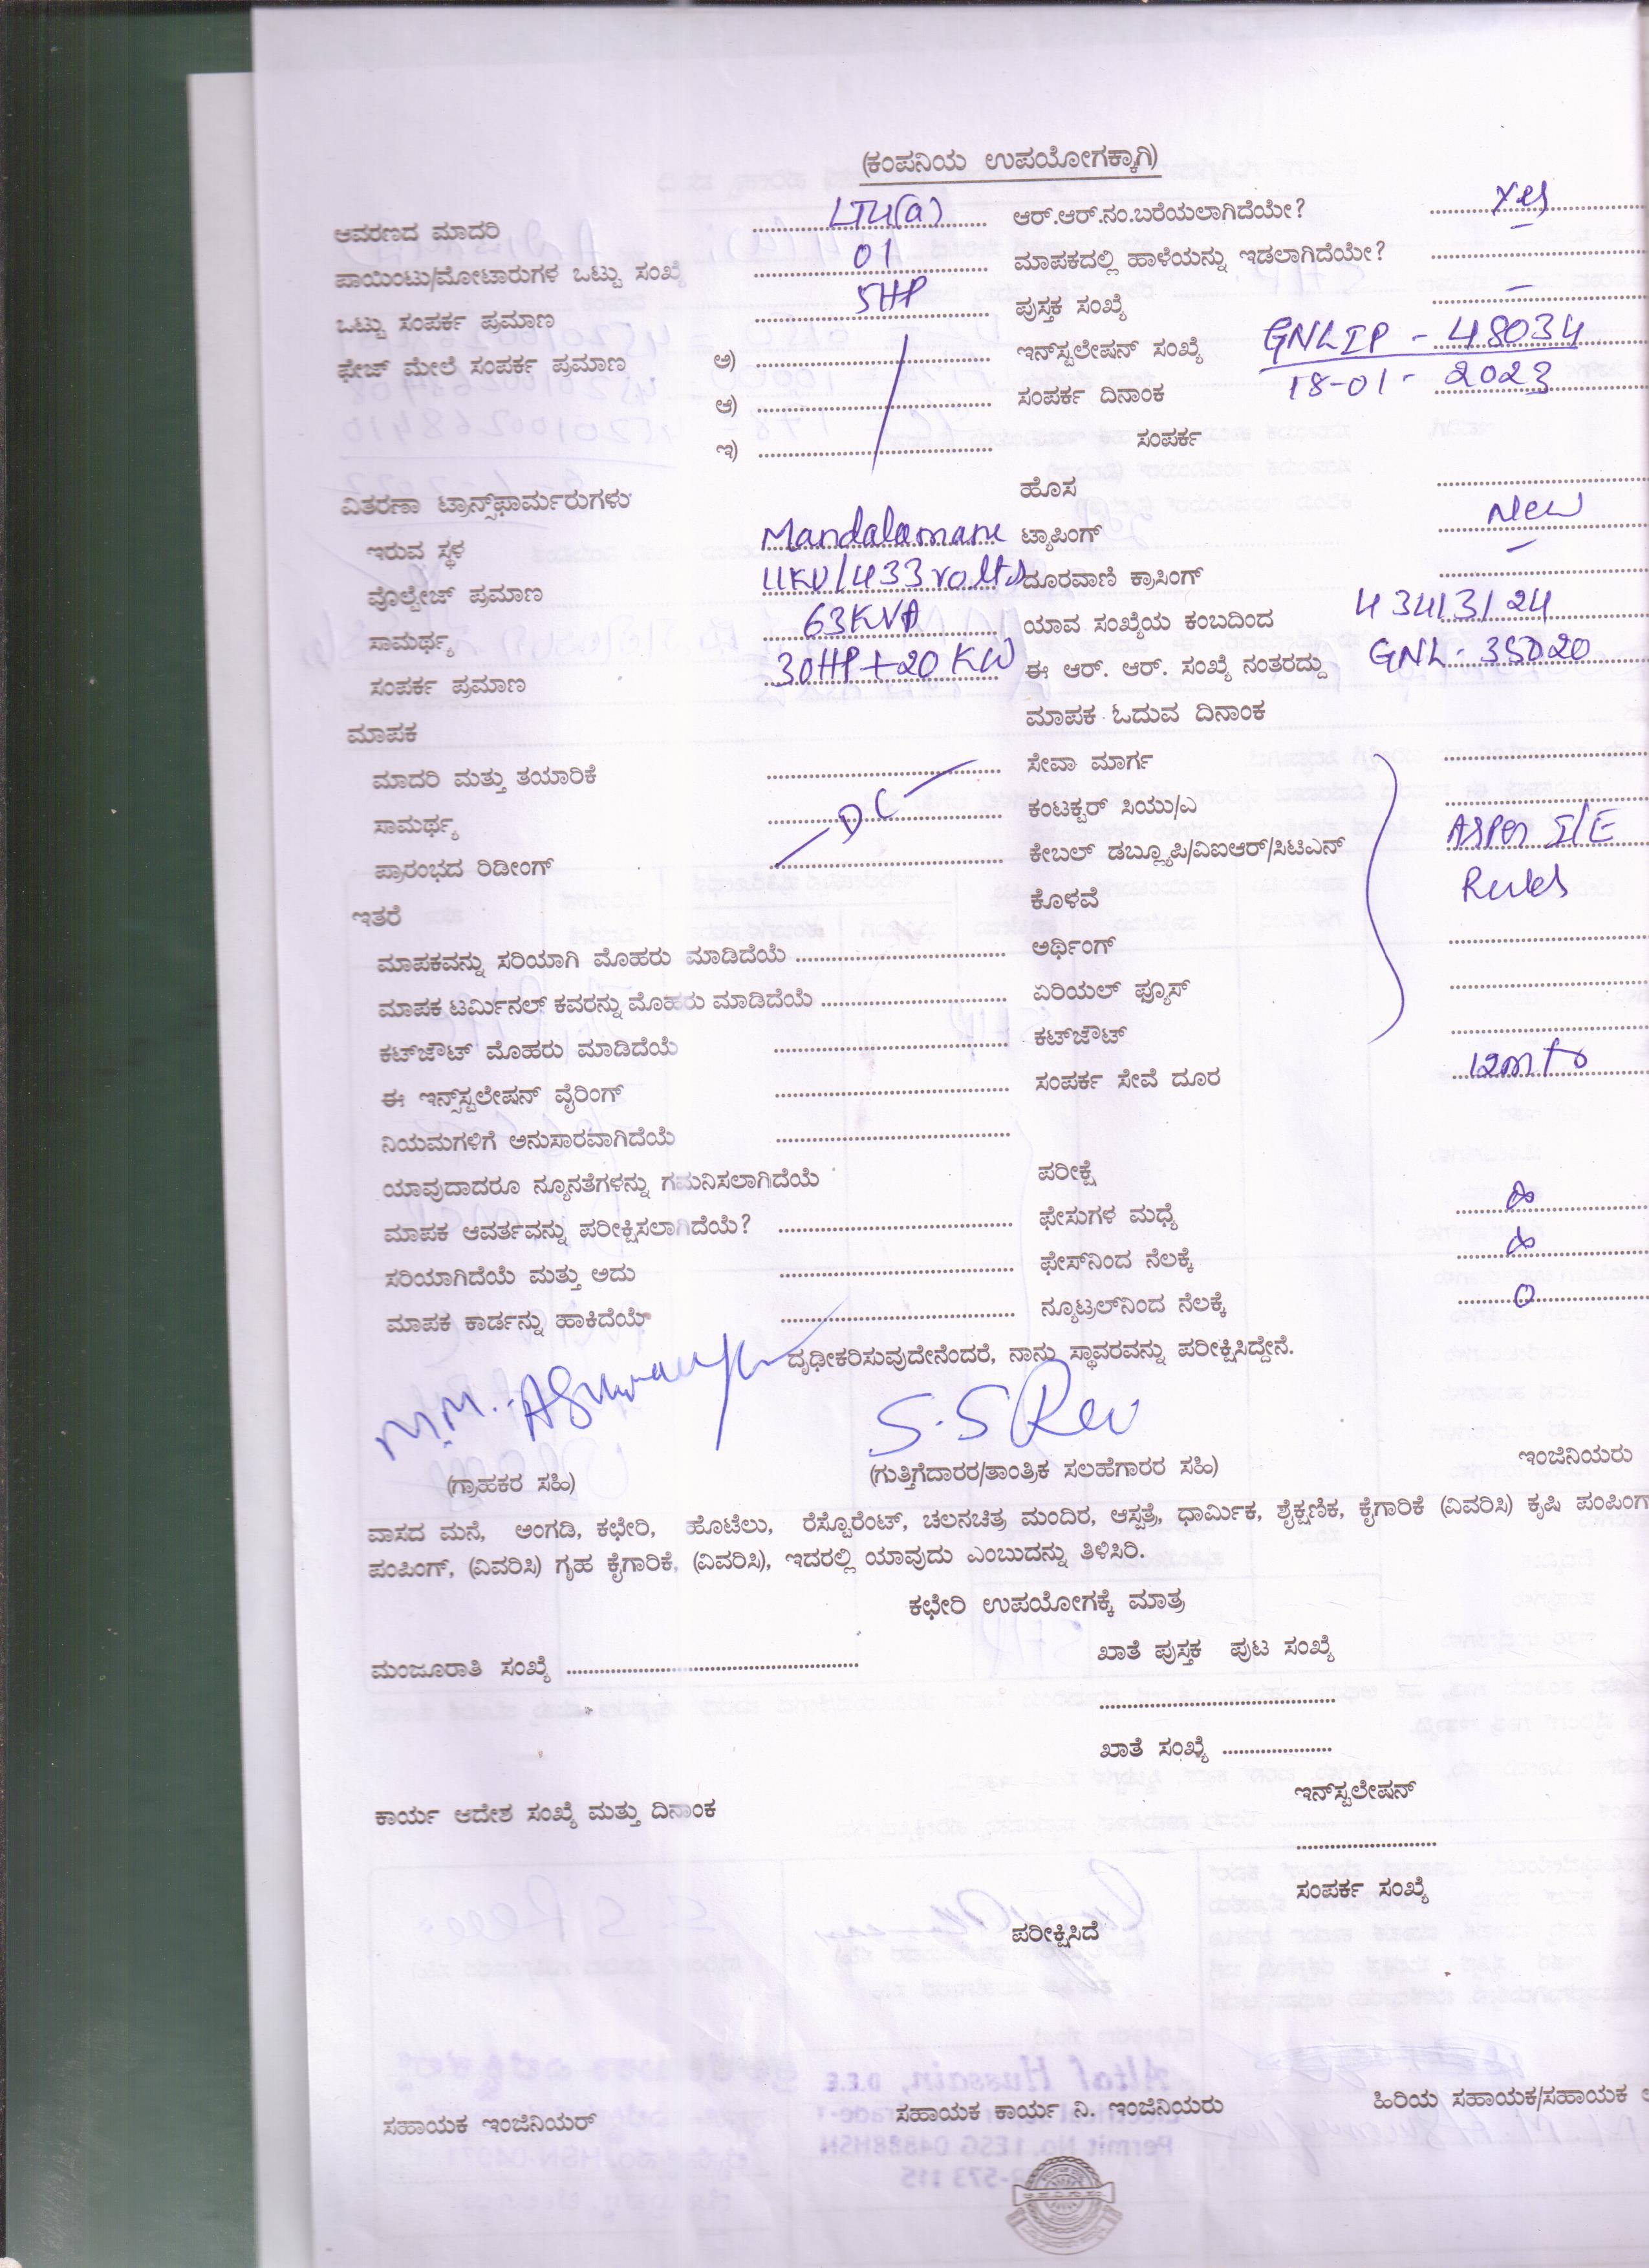 (ಕಂಪನಿಯ ಉಪಯೋಗಕ್ಕಾಗಿ)
ಆವರಣದ ಮಾದರಿ ........ LT4(a) ........ ಆರ್.ಆರ್.ನಂ.ಬರೆಯಲಾಗಿದೆಯೇ? ........ Yes
ಪಾಯಿಂಟು/ಮೋಟಾರುಗಳ ಒಟ್ಟು ಸಂಖ್ಯೆ ........ 01 ........ ಮಾಪಕದಲ್ಲಿ ಹಾಳೆಯನ್ನು ಇಡಲಾಗಿದೆಯೇ? ........ –
ಒಟ್ಟು ಸಂಪರ್ಕ ಪ್ರಮಾಣ ........ 5HP ........ ಪುಸ್ತಕ ಸಂಖ್ಯೆ ........ –
ಫೇಜ್ ಮೇಲೆ ಸಂಪರ್ಕ ಪ್ರಮಾಣ ಅ) ........ ಇನ್‌ಸ್ಟಲೇಷನ್ ಸಂಖ್ಯೆ GNLIP - 48034
ಆ) ........ ಸಂಪರ್ಕ ದಿನಾಂಕ 18-01- 2023
ಇ) ........ ಸಂಪರ್ಕ
ವಿತರಣಾ ಟ್ರಾನ್ಸ್‌ಫಾರ್ಮರುಗಳು ಹೊಸ ........
ಇರುವ ಸ್ಥಳ Mandalamane ಟ್ಯಾಪಿಂಗ್ ........ New
ವೊಲ್ಟೇಜ್ ಪ್ರಮಾಣ 11KV/433 volts ದೂರವಾಣಿ ಕ್ರಾಸಿಂಗ್ ........ –
ಸಾಮರ್ಥ್ಯ 63KVA ಯಾವ ಸಂಖ್ಯೆಯ ಕಂಬದಿಂದ 434/3/24
ಸಂಪರ್ಕ ಪ್ರಮಾಣ 30HP+20 KW ಈ ಆರ್. ಆರ್. ಸಂಖ್ಯೆ ನಂತರದ್ದು GNL- 35020
ಮಾಪಕ ಮಾಪಕ ಓದುವ ದಿನಾಂಕ
ಮಾದರಿ ಮತ್ತು ತಯಾರಿಕೆ ........ ಸೇವಾ ಮಾರ್ಗ ........
ಸಾಮರ್ಥ್ಯ – DC – ಕಂಟಕ್ಟರ್ ಸಿಯು/ಎ ........
ಪ್ರಾರಂಭದ ರಿಡೀಂಗ್ ........ ಕೇಬಲ್ ಡಬ್ಲ್ಯೂಪಿ/ವಿಐಆರ್/ಸಿಟಿಎನ್ As per I/E
ಇತರೆ ಕೊಳವೆ Rules
ಮಾಪಕವನ್ನು ಸರಿಯಾಗಿ ಮೊಹರು ಮಾಡಿದೆಯೆ ........ ಅರ್ಥಿಂಗ್ ........
ಮಾಪಕ ಟರ್ಮಿನಲ್ ಕವರನ್ನು ಮೊಹರು ಮಾಡಿದೆಯೆ ........ ಏರಿಯಲ್ ಫ್ಯೂಸ್ ........
ಕಟ್‌ಜೌಟ್ ಮೊಹರು ಮಾಡಿದೆಯೆ ........ ಕಟ್‌ಜೌಟ್ ........
ಈ ಇನ್ಸ್‌ಸ್ಟಲೇಷನ್ ವೈರಿಂಗ್ ........ ಸಂಪರ್ಕ ಸೇವೆ ದೂರ 12mts
ನಿಯಮಗಳಿಗೆ ಅನುಸಾರವಾಗಿದೆಯೆ ........
ಯಾವುದಾದರೂ ನ್ಯೂನತೆಗಳನ್ನು ಗಮನಿಸಲಾಗಿದೆಯೆ ಪರೀಕ್ಷೆ
ಮಾಪಕ ಆವರ್ತವನ್ನು ಪರೀಕ್ಷಿಸಲಾಗಿದೆಯೆ? ........ ಫೇಸುಗಳ ಮಧ್ಯೆ ∞
ಸರಿಯಾಗಿದೆಯೆ ಮತ್ತು ಅದು ........ ಫೇಸ್‌ನಿಂದ ನೆಲಕ್ಕೆ ∞
ಮಾಪಕ ಕಾರ್ಡನ್ನು ಹಾಕಿದೆಯೆ ........ ನ್ಯೂಟ್ರಲ್‌ನಿಂದ ನೆಲಕ್ಕೆ 0
ದೃಢೀಕರಿಸುವುದೇನೆಂದರೆ, ನಾನು ಸ್ಥಾವರವನ್ನು ಪರೀಕ್ಷಿಸಿದ್ದೇನೆ.
M.M. S.S Rev
(ಗ್ರಾಹಕರ ಸಹಿ) (ಗುತ್ತಿಗೆದಾರರ/ತಾಂತ್ರಿಕ ಸಲಹೆಗಾರರ ಸಹಿ) ಇಂಜಿನಿಯರು
ವಾಸದ ಮನೆ, ಅಂಗಡಿ, ಕಛೇರಿ, ಹೊಟೆಲು, ರೆಸ್ಟೊರೆಂಟ್, ಚಲನಚಿತ್ರ ಮಂದಿರ, ಆಸ್ಪತ್ರೆ, ಧಾರ್ಮಿಕ, ಶೈಕ್ಷಣಿಕ, ಕೈಗಾರಿಕೆ (ವಿವರಿಸಿ) ಕೃಷಿ ಪಂಪಿಂಗ್
ಪಂಪಿಂಗ್, (ವಿವರಿಸಿ) ಗೃಹ ಕೈಗಾರಿಕೆ, (ವಿವರಿಸಿ), ಇದರಲ್ಲಿ ಯಾವುದು ಎಂಬುದನ್ನು ತಿಳಿಸಿರಿ.
ಕಛೇರಿ ಉಪಯೋಗಕ್ಕೆ ಮಾತ್ರ
ಮಂಜೂರಾತಿ ಸಂಖ್ಯೆ ........ ಖಾತೆ ಪುಸ್ತಕ ಪುಟ ಸಂಖ್ಯೆ
ಖಾತೆ ಸಂಖ್ಯೆ ........
ಕಾರ್ಯ ಆದೇಶ ಸಂಖ್ಯೆ ಮತ್ತು ದಿನಾಂಕ ಇನ್‌ಸ್ಟಲೇಷನ್
ಸಂಪರ್ಕ ಸಂಖ್ಯೆ
ಪರೀಕ್ಷಿಸಿದೆ
ಸಹಾಯಕ ಇಂಜಿನಿಯರ್ ಸಹಾಯಕ ಕಾರ್ಯ ನಿ. ಇಂಜಿನಿಯರು ಹಿರಿಯ ಸಹಾಯಕ/ಸಹಾಯಕ